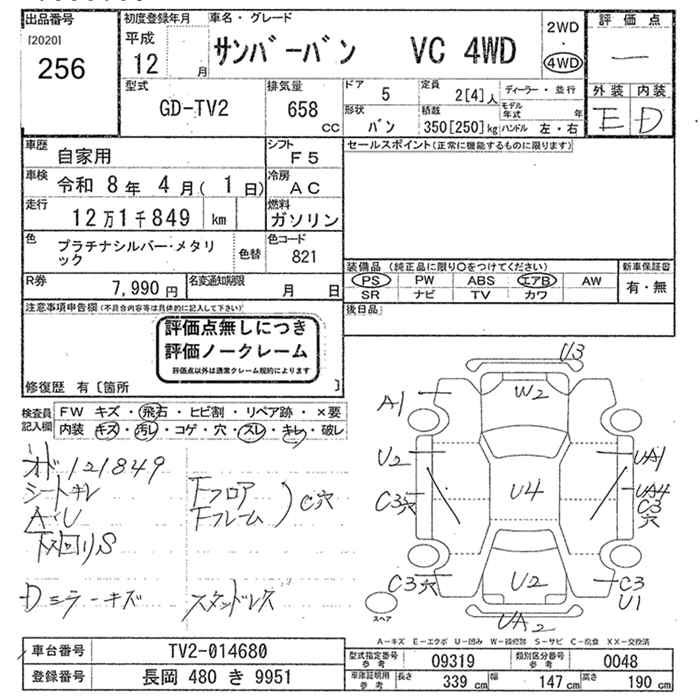 出品番号
[2020]
256
初度登録年月
平成
12 月
車名・グレード
サンバーバン VC 4WD
2WD
・
4WD
評価点
―
外装 内装
E D
型式
GD-TV2
排気量
658 CC
ドア
5
定員
2[4]人
ディーラー・並行
モデル年式 年
形状
バン
積載
350[250]kg
ハンドル 左・右
車歴
自家用
シフト
F5
車検
令和 8年 4月( 1日)
冷房
AC
走行
12万1千849 km
燃料
ガソリン
色
プラチナシルバー・メタリ
ック
色替
色コード
821
R券
7,990円
名変通知期限
月 日
セールスポイント(正常に機能するものに限ります)
装備品 (純正品に限り○をつけてください)
PS PW ABS エアB AW
SR ナビ TV カワ
新車保証書
有・無
後日品
注意事項申告欄(不具合内容等は具体的に記入して下さい)
評価点無しにつき
評価ノークレーム
評価点以外は通常クレーム規約によります
修復歴 有〔箇所 〕
検査員
記入欄
FW キズ・飛石・ヒビ割・リペア跡・×要
内装 キズ・汚レ・コゲ・穴・スレ・キレ・破レ
オド121849
シートキレ
A・U
下回りS
Fフロア
Fフレーム
C穴
Dミラーキズ
スタッドレス
U3
W2
A1
U2
UA1
U4
UA4
C3
穴
C3穴
C3穴
U2
C3
U1
UA2
スペア
A-キズ E-エクボ U-凹み W-補修跡 S-サビ C-腐食 XX-交換済
車台番号
TV2-014680
登録番号
長岡 480 き 9951
型式指定番号
参考
09319
類別区分番号
参考
0048
車庫証明用
参考
長さ
339 cm
幅
147 cm
高さ
190 cm